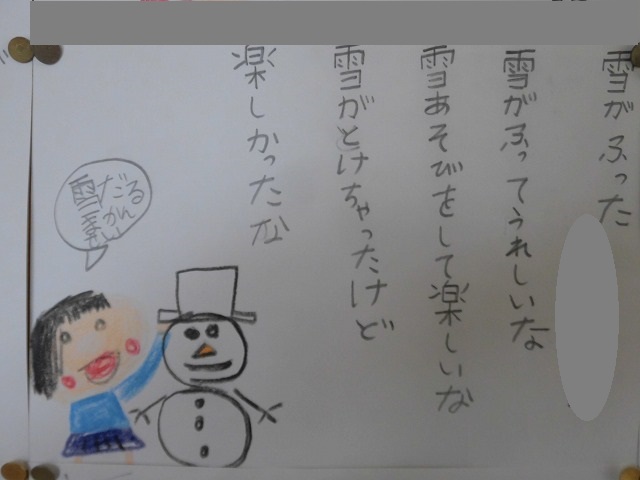 雪がふった
雪がふってうれしいな
雪あそびをして楽しいな
雪がとけちゃったけど
楽しかったな
だる
かんい